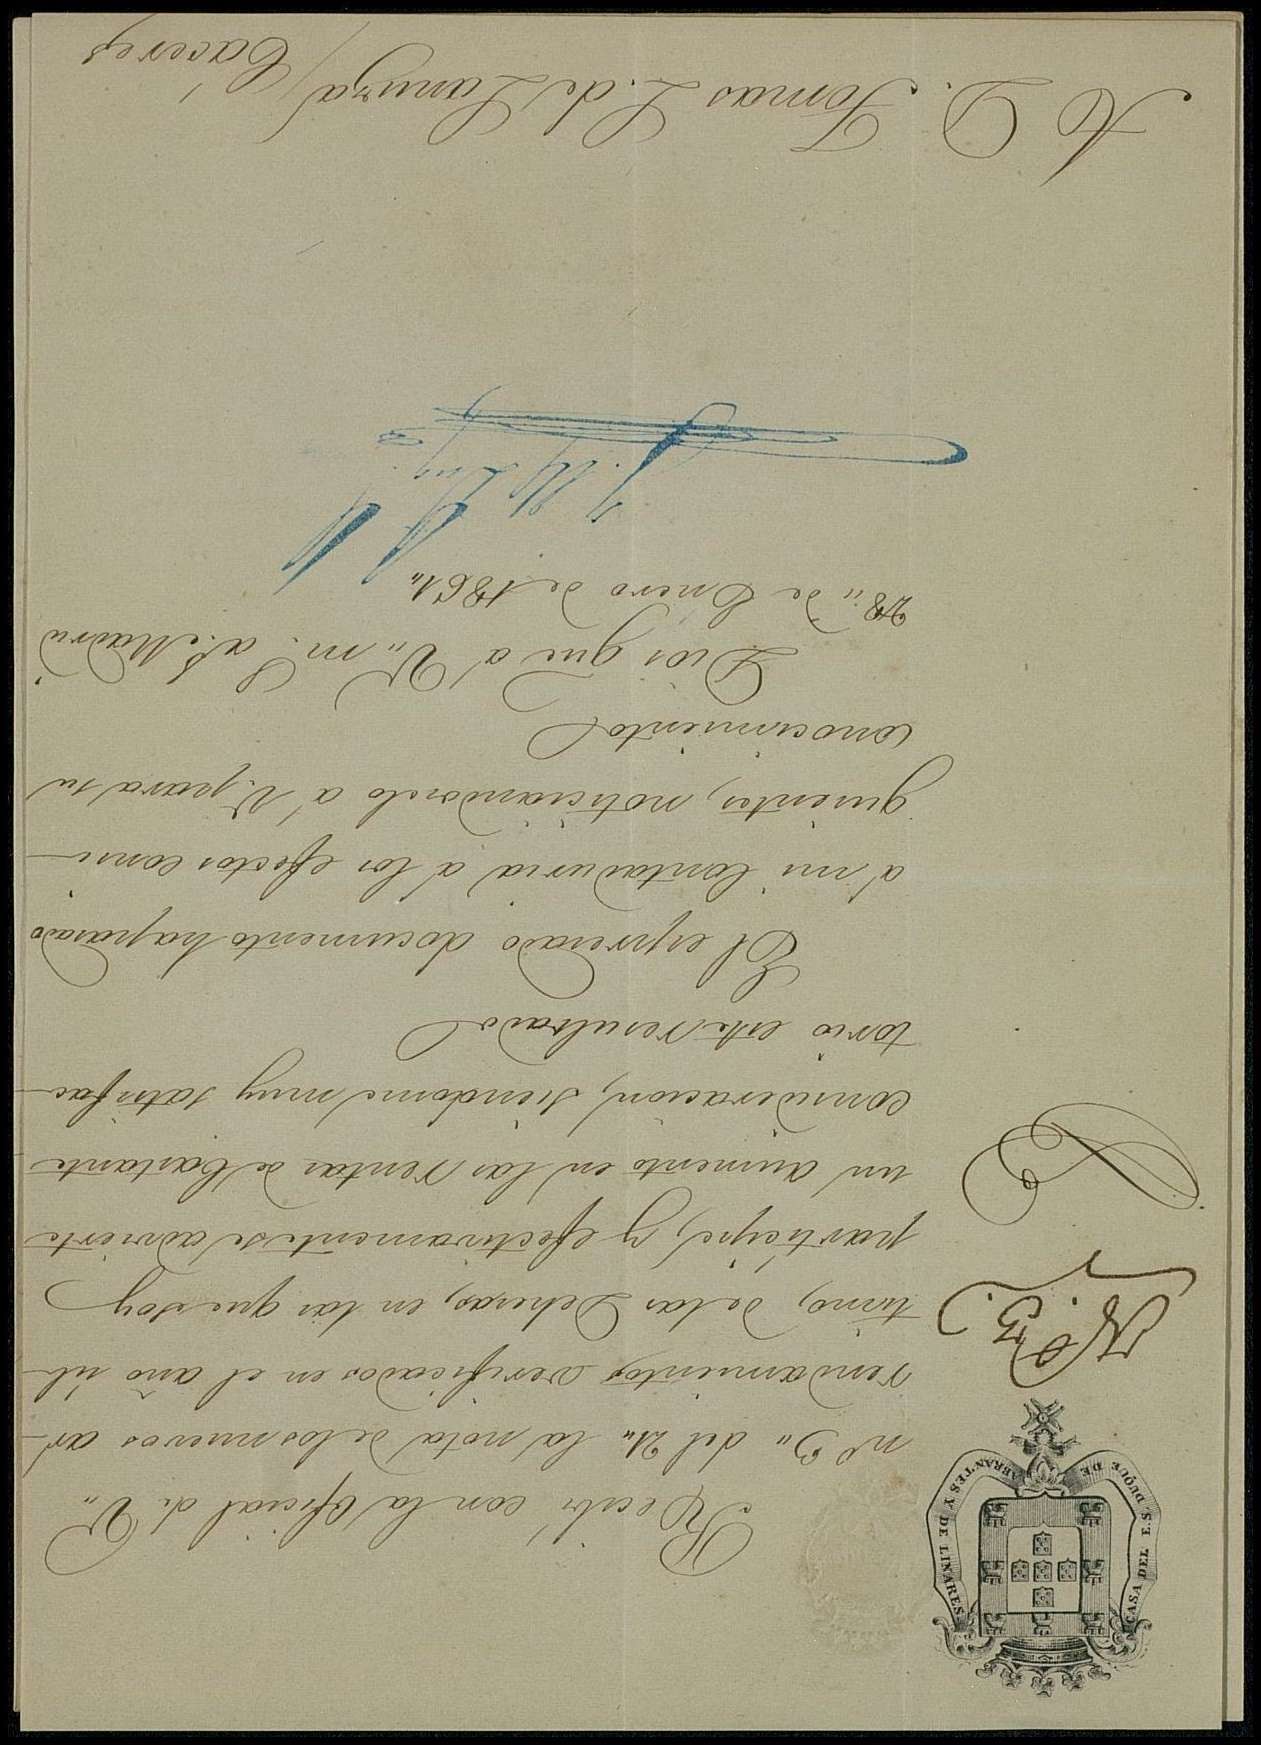 CASA DEL E.S. DUQUE DE ABRANTES Y DE LINARES
Nº 3.
Recibi con la Oficial de V.,,
nº 3,, del 21,, la nota de los nuevos ar-
rendamientos verificados en el año úl-
timo, de las Dehesas, en las que soy
participe, y efectivamente se advierte
un aumento en las rentas de bastante
consideracion, siendome muy satisfac-
torio este resultado
El espresado documento ha pasado
á mi Contaduria á los efectos consi-
guientes, noticiandoselo á V. para su
conocimiento
Dios gue á V,, m.s a.s Madrid
28,, de Enero de 1861,,
A D. Tomas L. de Lanuza / Caceres